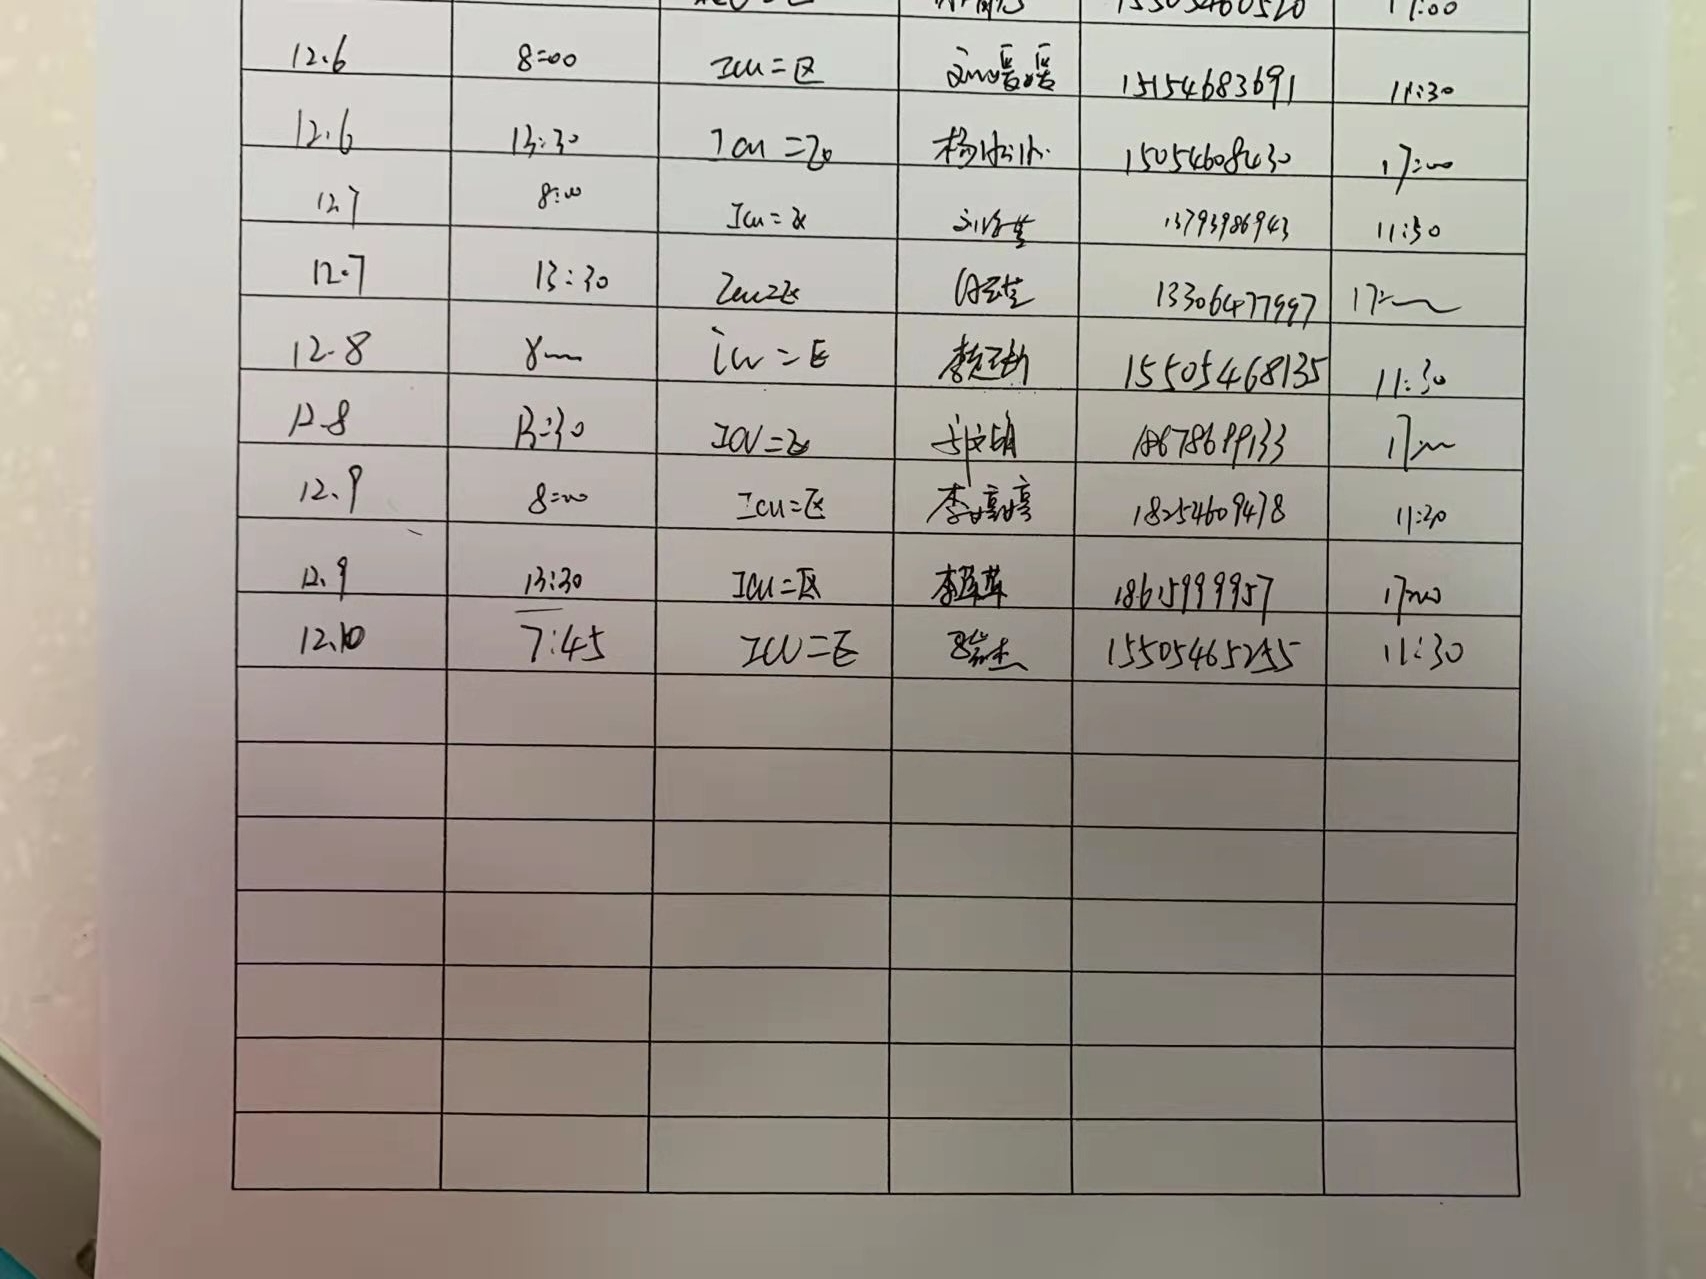 15505460520 17:00
12.6 8:00 ICU=区 15154683691 11:30
12.6 13:30 ICU=区 杨 15054608430 17:00
12.7 8:00 ICU=区 13793986943 11:30
12.7 13:30 ICU=区 13306477997 17:00
12.8 8:00 ICU=区 李 15505468135 11:30
12.8 13:30 ICU=区 18678699133 17:00
12.9 8:00 ICU=区 李婷婷 18254609478 11:20
12.9 13:30 ICU=区 李 18615999957 17:00
12.10 7:45 ICU=区 15505465255 11:30